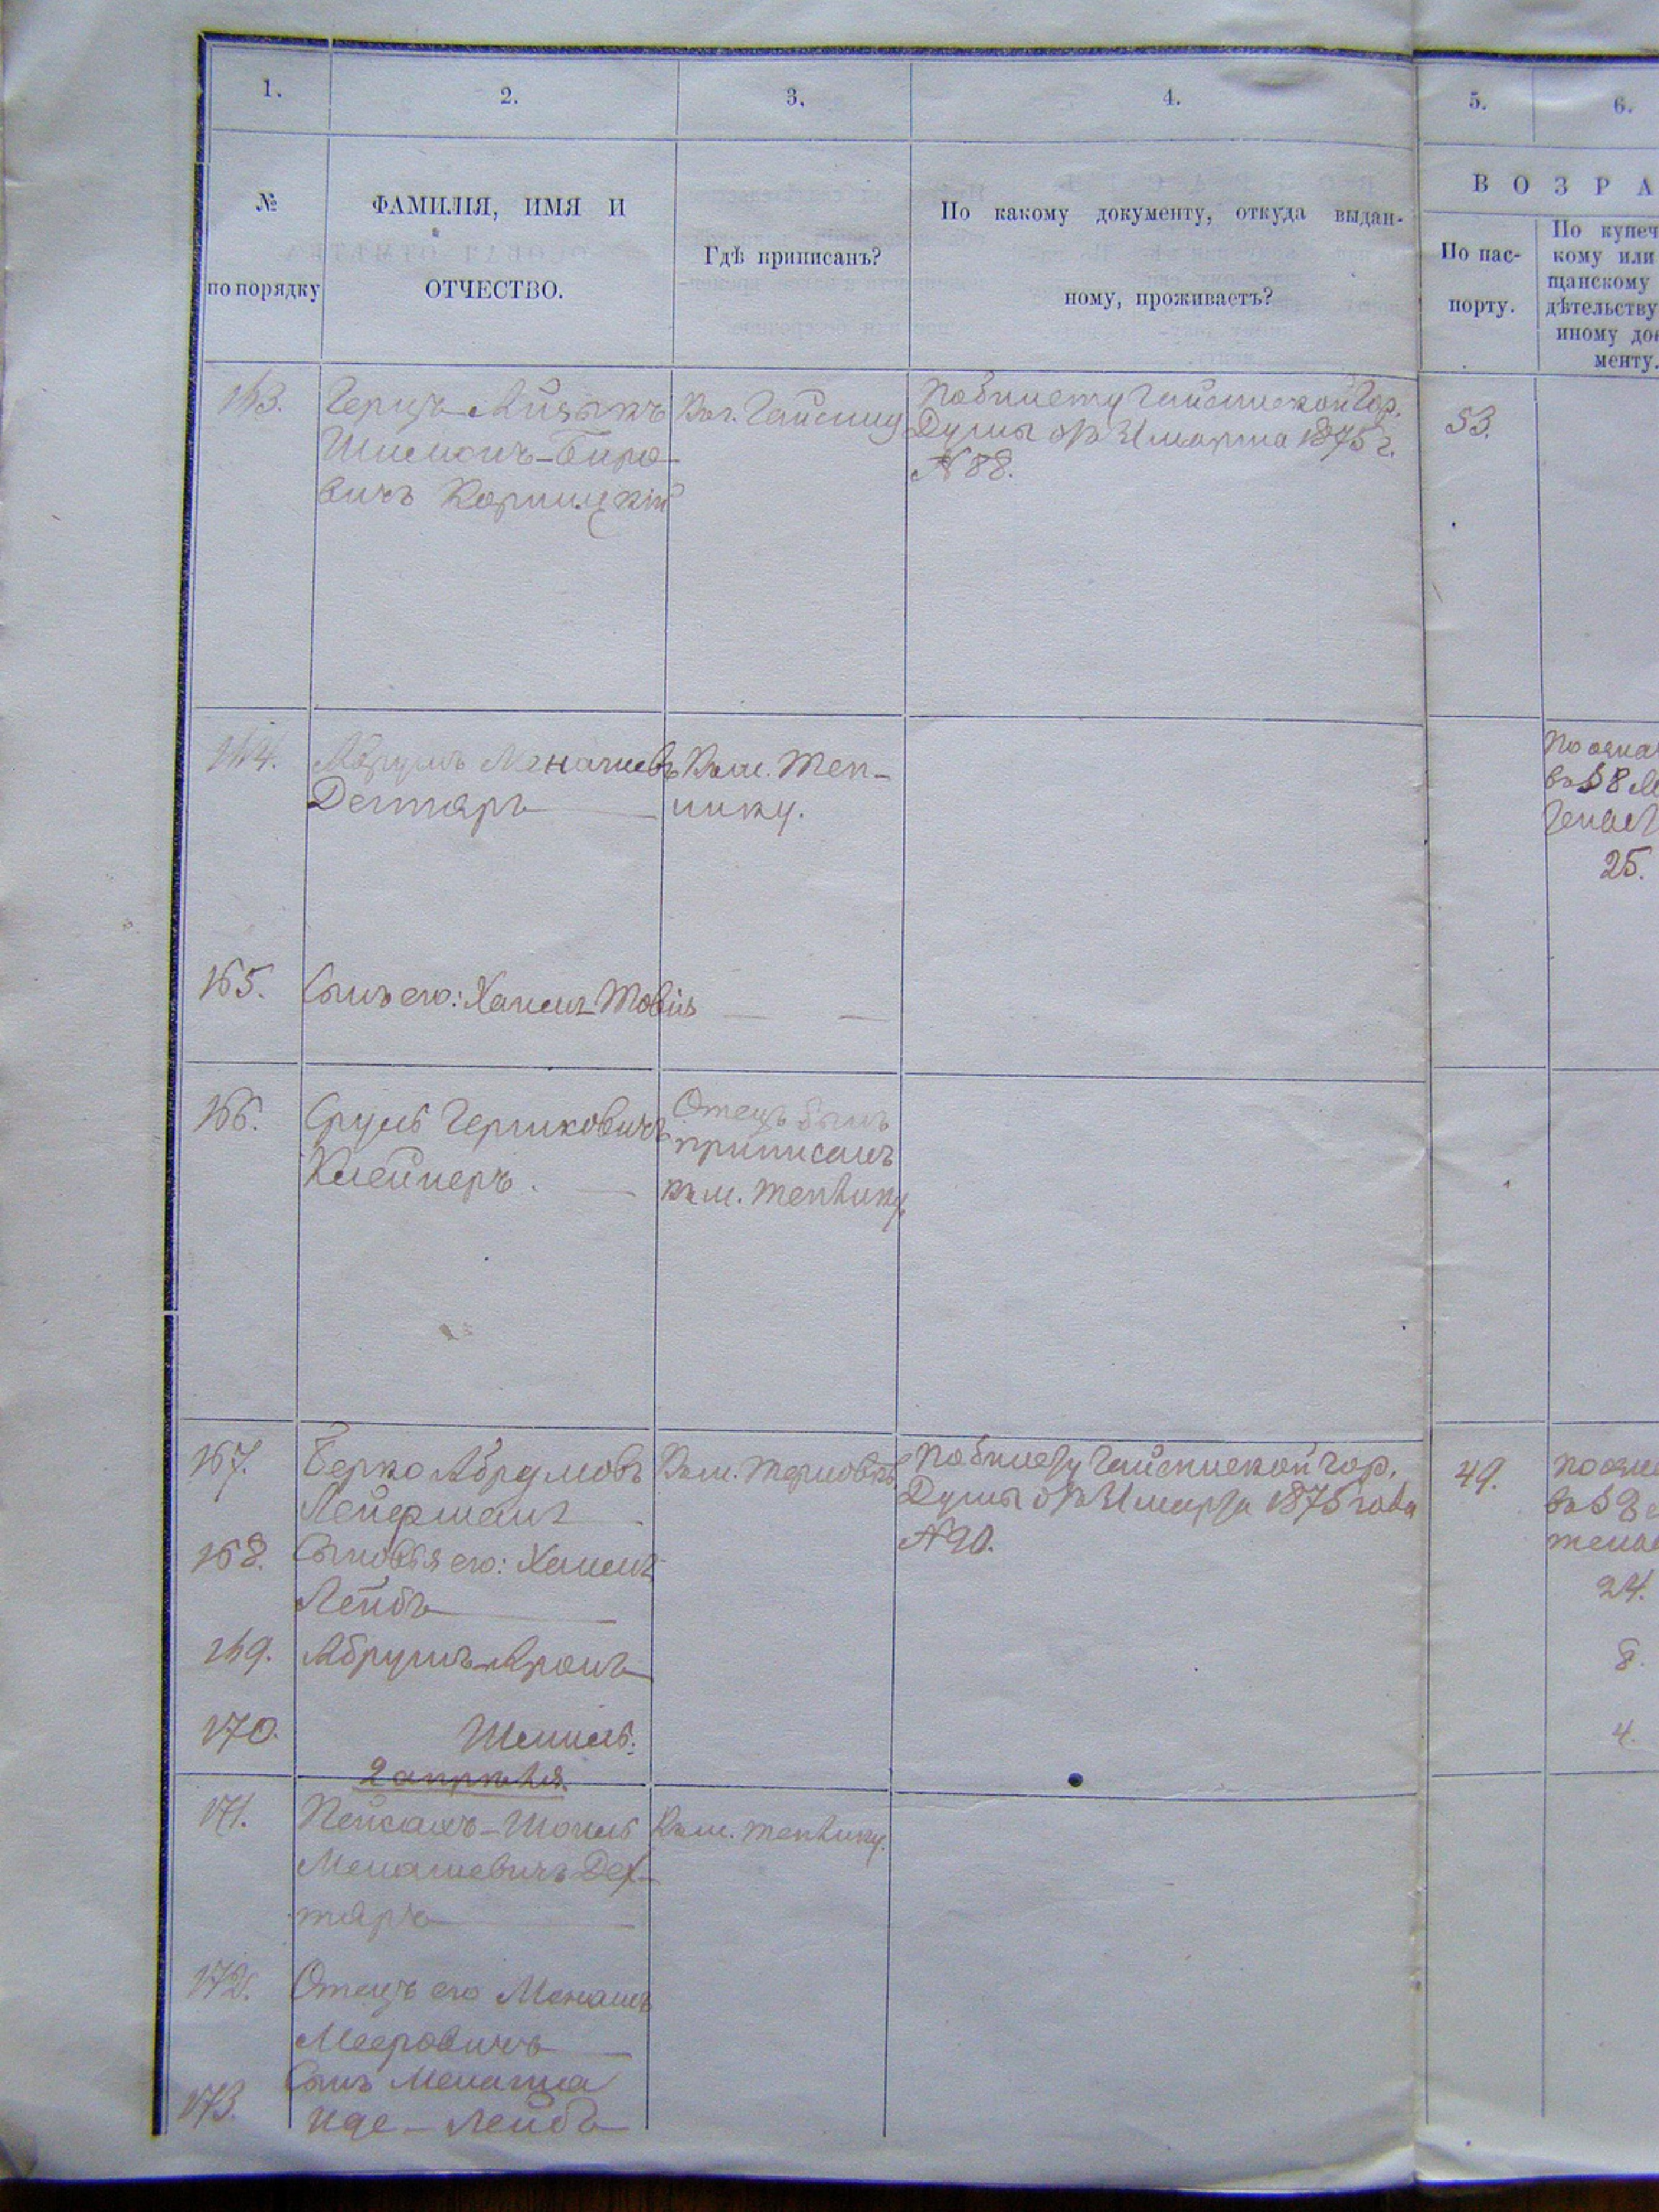 1.
2.
3.
4.
5.
6.
№
по порядку
ФАМИЛІЯ, ИМЯ И
ОТЧЕСТВО.
Гдѣ приписанъ?
По какому документу, откуда выдан-
ному, проживаетъ?
В О З Р А
По пас-
порту.
По купеч
кому или
щанскому
дѣтельству
иному до
менту.
163.
Герцъ-Айзыкъ
Шимонъ-Беро-
вичъ Корницкій
Въ г. Гайсину
По билету Гайсинской Гор.
Думы отъ 31 марта 1875 г.
№ 88.
53.
164.
Аврумъ Менашевъ
Дегтяръ
Къ м. Теп-
лику.
25.
165.
Сынъ его: Хаимъ-Товія
166.
Сруль Гершковичъ
Клейнеръ.
Отецъ былъ
приписанъ
къ м. Теплику
167.
Берко Абрумовъ
Лейфманъ
Къ м. Терновкѣ
По билету Гайсинской Гор.
Думы отъ 31 марта 1875 года
№ 90.
49.
168.
Сыновья его: Хаимъ
Лейбъ
24.
169.
Абрумъ-Аронъ
8.
170.
Шмиль.
4.
2 апрѣля.
171.
Пейсахъ-Шмиль
Менашевичъ Дех-
тяръ
Къ м. Теплику.
172.
Отецъ его Менашъ
Мееровичъ
173.
Сынъ Менаша
Иде-Лейбъ